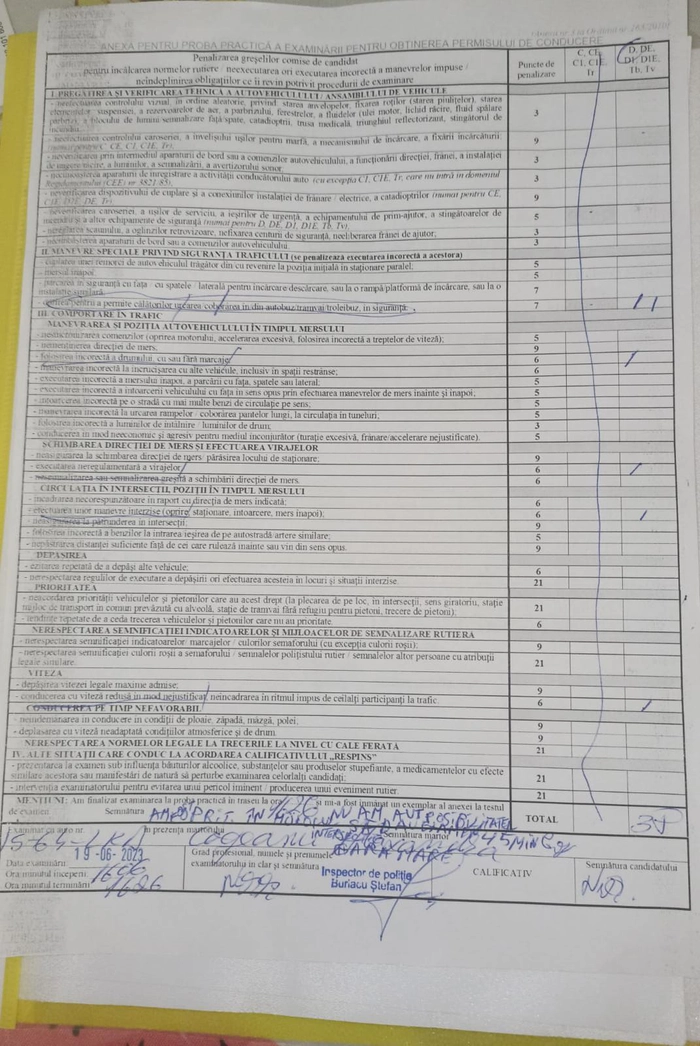 ANEXĂ PENTRU PROBA PRACTICĂ A EXAMINĂRII PENTRU OBŢINEREA PERMISULUI DE CONDUCERE
Penalizarea greşelilor comise de candidat
pentru încălcarea normelor rutiere / neexecutarea ori executarea incorectă a manevrelor impuse /
neîndeplinirea obligaţiilor ce îi revin potrivit procedurii de examinare
Puncte de
penalizare
C, CE,
C1, C1E,
Tr
D, DE,
D1, D1E,
Tb, Tv
I. PREGĂTIREA ŞI VERIFICAREA TEHNICĂ A AUTOVEHICULULUI / ANSAMBLULUI DE VEHICULE
- neefectuarea controlului vizual, în ordine aleatorie, privind starea anvelopelor, fixarea roţilor (starea piuliţelor), starea
elementelor suspensiei, a rezervoarelor de aer, a parbrizului, ferestrelor, a fluidelor (ulei motor, lichid răcire, fluid spălare
parbriz), a blocului de lumini semnalizare faţă/spate, catadioptrii, trusa medicală, triunghiul reflectorizant, stingătorul de
incendiu; 3
- neefectuarea controlului caroseriei, a învelişului uşilor pentru marfă, a mecanismului de încărcare, a fixării încărcăturii
(numai pentru C, CE, C1, C1E, Tr); 9
- neverificarea prin intermediul aparaturii de bord sau a comenzilor autovehiculului, a funcţionării direcţiei, frânei, a instalaţiei
de ungere/răcire, a luminilor, a semnalizării, a avertizorului sonor; 3
- necunoaşterea aparaturii de înregistrare a activităţii conducătorului auto (cu excepţia C1, C1E, Tr, care nu intră în domeniul
Regulamentului (CEE) nr. 3821/85); 3
- neverificarea dispozitivului de cuplare şi a conexiunilor instalaţiei de frânare / electrice, a catadioptrilor (numai pentru CE,
C1E, DE, D1E, Tr) 9
- neverificarea caroseriei, a uşilor de serviciu, a ieşirilor de urgenţă, a echipamentului de prim-ajutor, a stingătoarelor de
incendiu şi a altor echipamente de siguranţă (numai pentru D, DE, D1, D1E, Tb, Tv); 5
- nereglarea scaunului, a oglinzilor retrovizoare, nefixarea centurii de siguranţă, neeliberarea frânei de ajutor; 3
- necunoaşterea aparaturii de bord sau a comenzilor autovehiculului. 3
II. MANEVRE SPECIALE PRIVIND SIGURANŢA TRAFICULUI (se penalizează executarea incorectă a acestora)
- cuplarea unei remorci de autovehiculul trăgător din cu revenire la poziţia iniţială în staţionare paralel; 5
- mersul înapoi 5
- parcarea în siguranţă cu faţa / cu spatele / laterală pentru încărcare/descărcare, sau la o rampă/platformă de încărcare, sau la o
instalaţie similară; 7
- oprirea pentru a permite călătorilor urcarea/coborârea în/din autobuz/tramvai/troleibuz, în siguranţă. 7
III. COMPORTARE ÎN TRAFIC
MANEVRAREA ŞI POZIŢIA AUTOVEHICULULUI ÎN TIMPUL MERSULUI
- nesincronizarea comenzilor (oprirea motorului, accelerarea excesivă, folosirea incorectă a treptelor de viteză); 5
- nemenţinerea direcţiei de mers; 9
- folosirea incorectă a drumului, cu sau fără marcaje 6
- manevrarea incorectă la încrucişarea cu alte vehicule, inclusiv în spaţii restrânse; 6
- executarea incorectă a mersului înapoi, a parcării cu faţa, spatele sau lateral; 5
- executarea incorectă a întoarcerii vehiculului cu faţa în sens opus prin efectuarea manevrelor de mers înainte şi înapoi; 5
- întoarcerea incorectă pe o stradă cu mai multe benzi de circulaţie pe sens; 5
- manevrarea incorectă la urcarea rampelor / coborârea pantelor lungi, la circulaţia în tuneluri; 5
- folosirea incorectă a luminilor de întâlnire / luminilor de drum; 3
- conducerea în mod neeconomic şi agresiv pentru mediul înconjurător (turaţie excesivă, frânare/accelerare nejustificate). 5
SCHIMBAREA DIRECŢIEI DE MERS ŞI EFECTUAREA VIRAJELOR
- neasigurarea la schimbarea direcţiei de mers/ părăsirea locului de staţionare; 9
- executarea neregulamentară a virajelor 6
- nesemnalizarea sau semnalizarea greşită a schimbării direcţiei de mers. 6
CIRCULAŢIA ÎN INTERSECŢII, POZIŢII ÎN TIMPUL MERSULUI
- încadrarea necorespunzătoare în raport cu direcţia de mers indicată; 6
- efectuarea unor manevre interzise (oprire, staţionare, întoarcere, mers înapoi); 6
- neasigurarea la pătrunderea în intersecţii; 9
- folosirea incorectă a benzilor la intrarea/ieşirea de pe autostradă/artere similare; 5
- nepăstrarea distanţei suficiente faţă de cei care rulează înainte sau vin din sens opus. 9
DEPĂŞIREA
- ezitarea repetată de a depăşi alte vehicule; 6
- nerespectarea regulilor de executare a depăşirii ori efectuarea acesteia în locuri şi situaţii interzise. 21
PRIORITATEA
- neacordarea priorităţii vehiculelor şi pietonilor care au acest drept (la plecarea de pe loc, în intersecţii, sens giratoriu, staţie
mijloc de transport în comun prevăzută cu alveolă, staţie de tramvai fără refugiu pentru pietoni, trecere de pietoni); 21
- tendinţe repetate de a ceda trecerea vehiculelor şi pietonilor care nu au prioritate. 6
NERESPECTAREA SEMNIFICAŢIEI INDICATOARELOR ŞI MIJLOACELOR DE SEMNALIZARE RUTIERĂ
- nerespectarea semnificaţiei indicatoarelor/ marcajelor / culorilor semaforului (cu excepţia culorii roşii); 9
- nerespectarea semnificaţiei culorii roşii a semaforului / semnalelor poliţistului rutier / semnalelor altor persoane cu atribuţii
legale similare. 21
VITEZA
- depăşirea vitezei legale maxime admise; 9
- conducerea cu viteză redusă în mod nejustificat, neîncadrarea în ritmul impus de ceilalţi participanţi la trafic. 6
CONDUCEREA PE TIMP NEFAVORABIL
- neîndemânarea în conducere în condiţii de ploaie, zăpadă, mâzgă, polei; 9
- deplasarea cu viteză neadaptată condiţiilor atmosferice şi de drum. 9
NERESPECTAREA NORMELOR LEGALE LA TRECERILE LA NIVEL CU CALE FERATĂ 21
IV. ALTE SITUAŢII CARE CONDUC LA ACORDAREA CALIFICATIVULUI „RESPINS”
- prezentarea la examen sub influenţa băuturilor alcoolice, substanţelor sau produselor stupefiante, a medicamentelor cu efecte
similare acestora sau manifestări de natură să perturbe examinarea celorlalţi candidaţi; 21
- intervenţia examinatorului pentru evitarea unui pericol iminent / producerea unui eveniment rutier. 21
MENŢIUNI: Am finalizat examinarea la proba practică în traseu la ora 1626 şi mi-a fost înmânat un exemplar al anexei la testul
de examen Semnătura
AM OPRIT ÎN NU AM AVUT POSIBILITATEA
TOTAL 38
INTERSECŢIE 45 MIN
GARA MARE
Examinat cu auto nr. în prezenţa martorului Semnătura martor
Data examinării 19-06-2023
Ora/minutul începerii 1600
Ora/minutul terminării 1626
Grad profesional, numele şi prenumele
examinatorului în clar şi semnătura
Inspector de poliţie
Buriacu Ştefan
CALIFICATIV
Semnătura candidatului